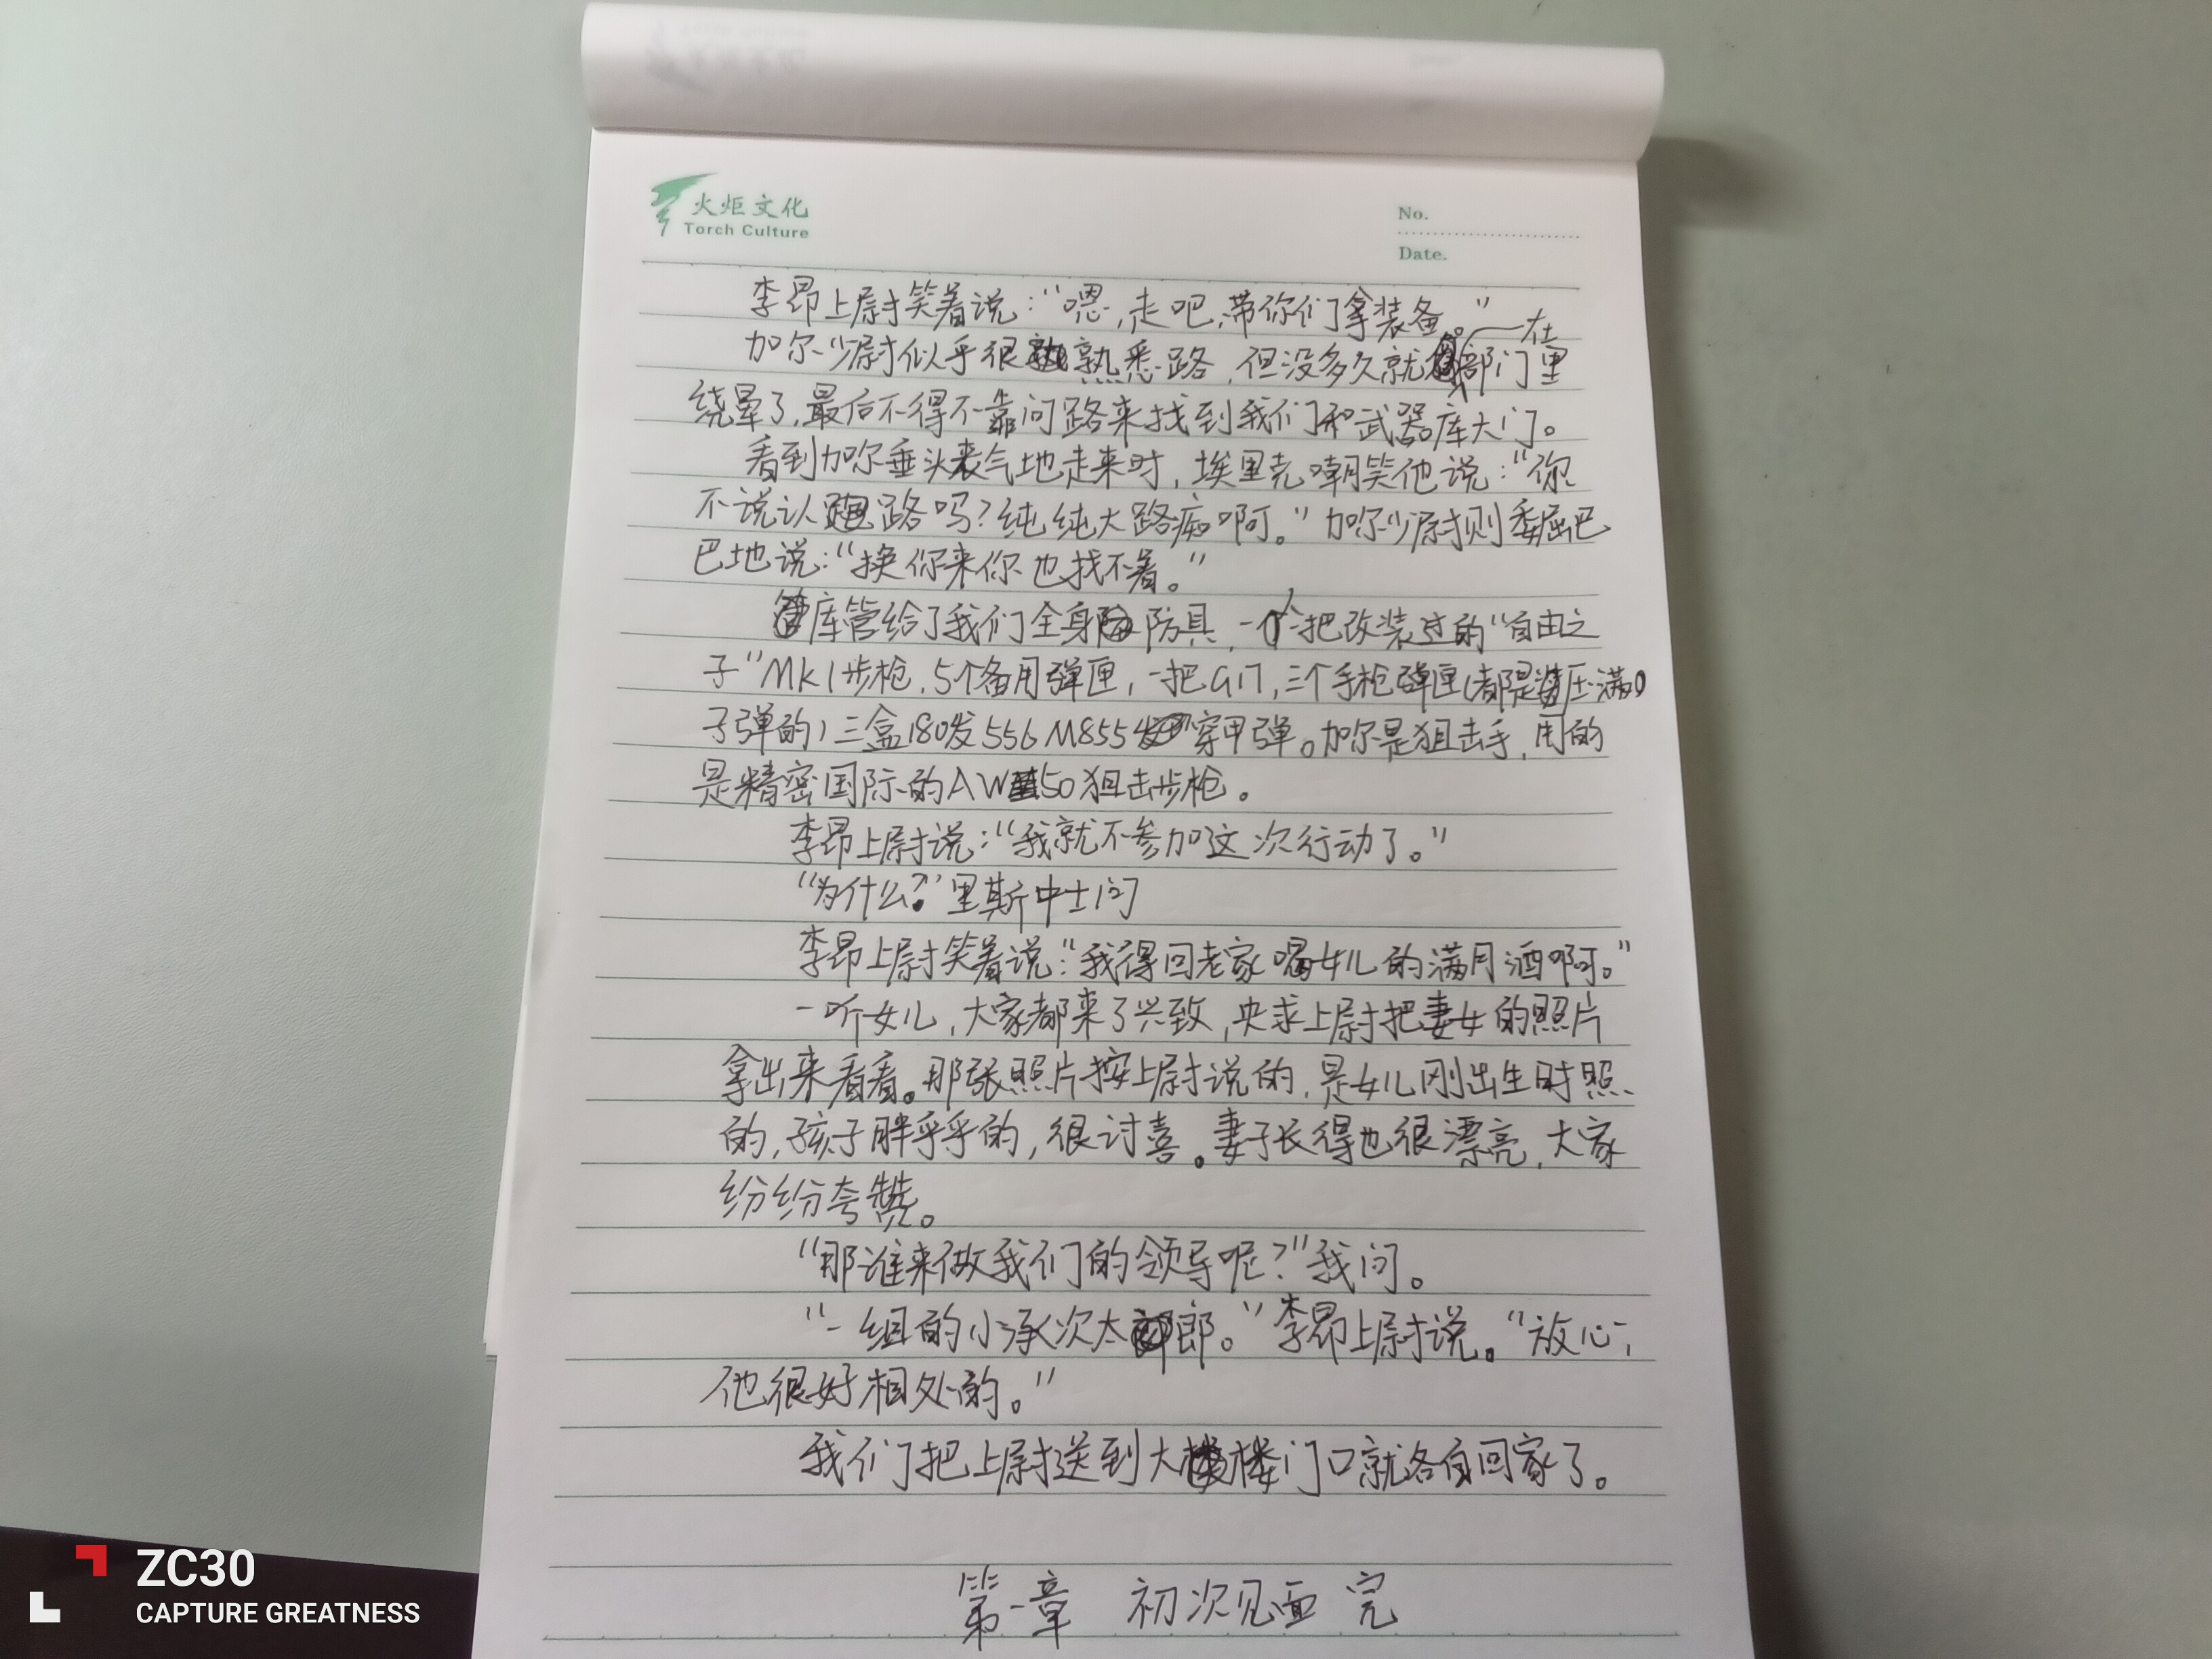 火炬文化
Torch Culture
No.
Date.
李昂上尉笑着说：“嗯，走吧，带你们拿装备。”
加尔少尉似乎很熟悉路，但没多久就在部门里
绕晕了，最后不得不靠问路来找到我们和武器库大门。
看到加尔垂头丧气地走来时，埃里克嘲笑他说：“你
不说认路吗？纯纯大路痴啊。”加尔少尉则委屈巴
巴地说：“换你来你也找不着。”
库管给了我们全身防具，一把改装过的“自由之
子”MK1步枪，5个备用弹匣，一把G17，三个手枪弹匣（都是压满
子弹的）三盒180发556M855穿甲弹。加尔是狙击手，用的
是精密国际的AW50狙击步枪。
李昂上尉说：“我就不参加这次行动了。”
“为什么？”里斯中士问
李昂上尉笑着说：“我得回老家喝女儿的满月酒啊。”
一听女儿，大家都来了兴致，央求上尉把妻女的照片
拿出来看看。那张照片按上尉说的，是女儿刚出生时照
的，孩子胖乎乎的，很讨喜。妻子长得也很漂亮，大家
纷纷夸赞。
“那谁来做我们的领导呢？”我问。
“一组的小承次太郎。”李昂上尉说。“放心，
他很好相处的。”
我们把上尉送到大楼门口就各自回家了。
第一章 初次见面 完
ZC30
CAPTURE GREATNESS